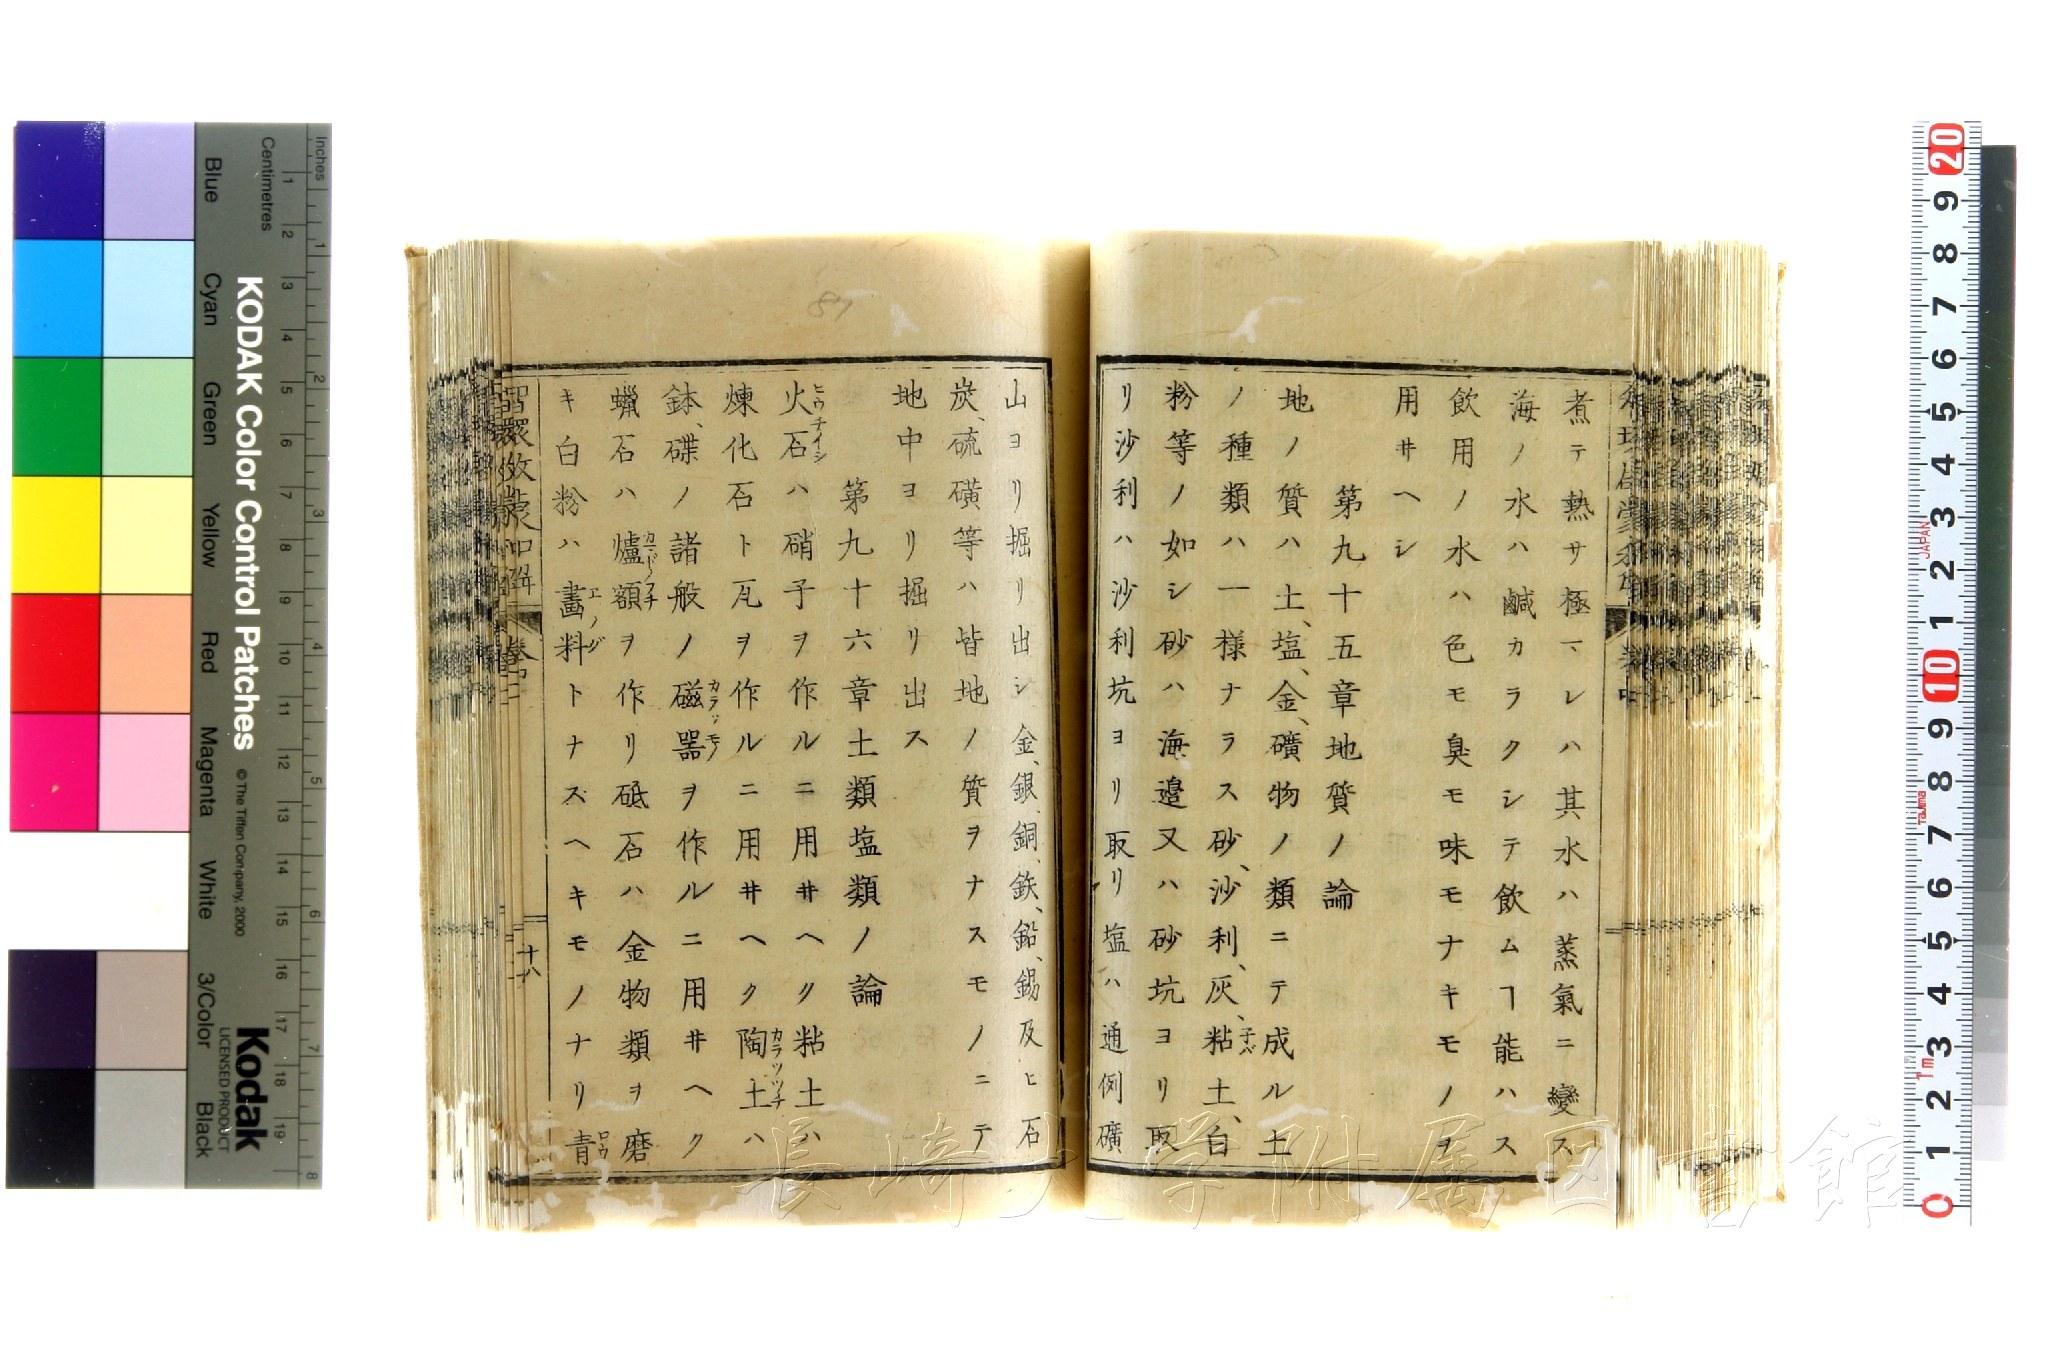 煮テ熱サ極マレハ其水ハ蒸氣ニ變ス
海ノ水ハ鹹カラクシテ飲ムヿ能ハス
飲用ノ水ハ色モ臭モ味モナキモノヲ
用井ヘシ
第九十五章地質ノ論
地ノ質ハ土、塩、金、礦物ノ類ニテ成ル土
ノ種類ハ一様ナラス砂、沙利、灰、粘土、白
粉等ノ如シ砂ハ海邉又ハ砂坑ヨリ取
リ沙利ハ沙利坑ヨリ取リ塩ハ通例礦
山ヨリ掘リ出シ金、銀、銅、鉄、鉛、錫及ヒ石
炭、硫磺等ハ皆地ノ質ヲナスモノニテ
地中ヨリ掘リ出ス
第九十六章土類塩類ノ論
ヒウチイシ
火石ハ硝子ヲ作ルニ用井ヘク粘土ハ
カラツツチ
煉化石ト瓦ヲ作ルニ用井ヘク陶土ハ
カラツモノ
鉢、碟ノ諸般ノ磁噐ヲ作ルニ用井ヘク
蠟石ハ爐額ヲ作リ砥石ハ金物類ヲ磨
エノグ
キ白粉ハ畫料トナスヘキモノナリ青
十八
KODAK Color Control Patches
© The Tiffen Company, 2000
Kodak
LICENSED PRODUCT
Inches
Centimetres
Blue
Cyan
Green
Yellow
Red
Magenta
White
3/Color
Black
1 2 3 4 5 6 7 8 9 10 11 12 13 14 15 16 17 18 19
1 2 3 4 5 6 7 8
20 9 8 7 6 5 4 3 2 1 10 9 8 7 6 5 4 3 2 1 0
JAPAN
Tajima
1m
長崎大学附属図書館